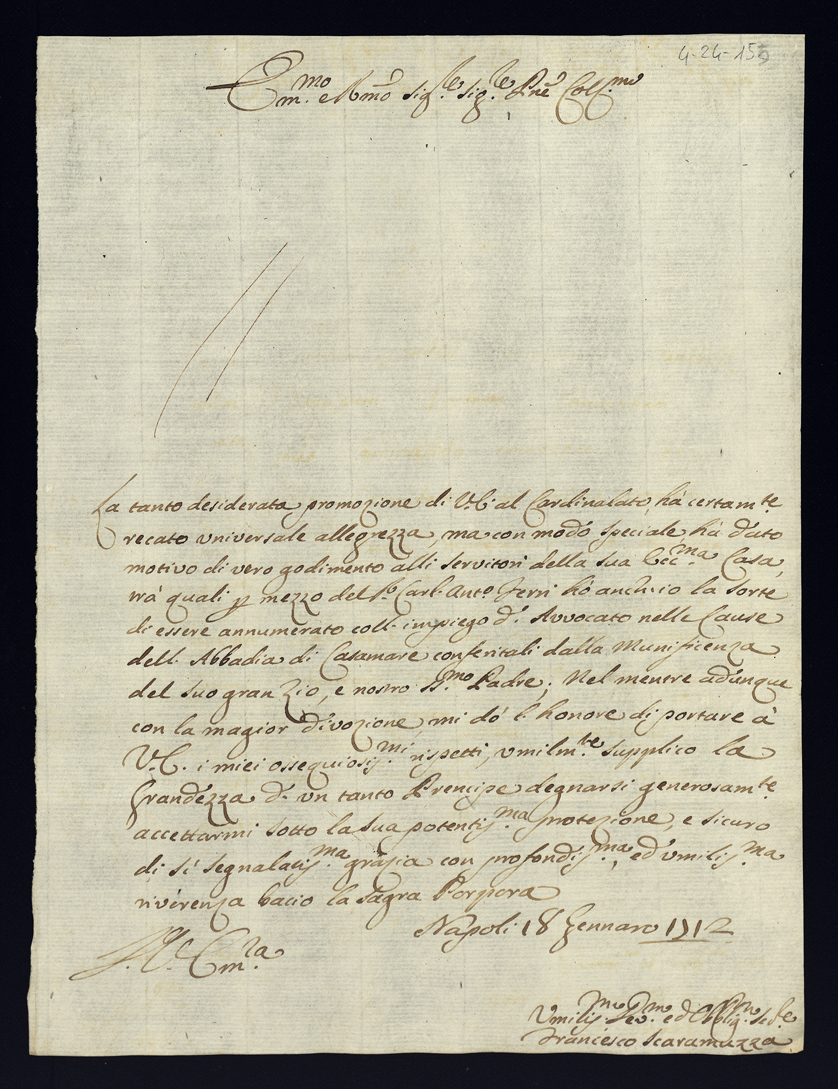 4-24-155
Em.mo e R.mo Sig.re Sig.re P.ne Coll.mo
La tanto desiderata promozione di V.E. al Cardinalato, hà certam.te
recato universale allegrezza, ma con modo speciale hà dato
motivo di vero godimento alli servitori della sua Ecc.ma Casa,
trà quali p mezzo del Carl. Ant.o Ferri hò anch'io la sorte
di essere annumerato coll'impiego d'Avvocato nelle Cause
dell'Abbadia di Casamare conferitali dalla Munificenza
del suo gran Zio, e nostro S.mo Padre; Nel mentre adunque
con la magior divozione mi dò l'honore di portare à
V.E. i miei ossequiosiss.mi rispetti, umilm.te supplico la
Grandezza d'un tanto Prencipe degnarsi generosam.te
accettarmi sotto la sua potentiss.ma protezione, e sicuro
di sì segnalatiss.ma grazia con profondiss.ma, ed umiliss.ma
riverenza bacio la sagra Porpora
Napoli 18 Gennaro 1712
Em.za
Umiliss.mo Dev.mo ed Obblig.mo Ser.e
Francesco Scaramuzza